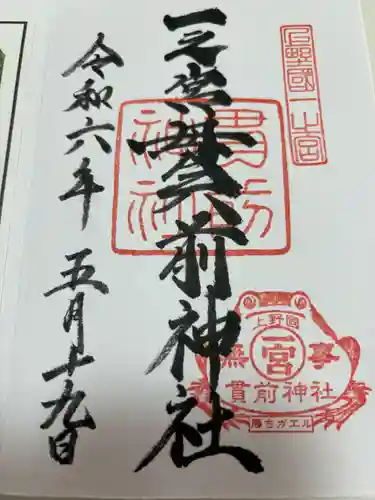 上野國一之宮
一之宮貫前神社
貫前神社
令和六年 五月十九日
上野國
一宮
無事
貫前神社
勝ちガエル